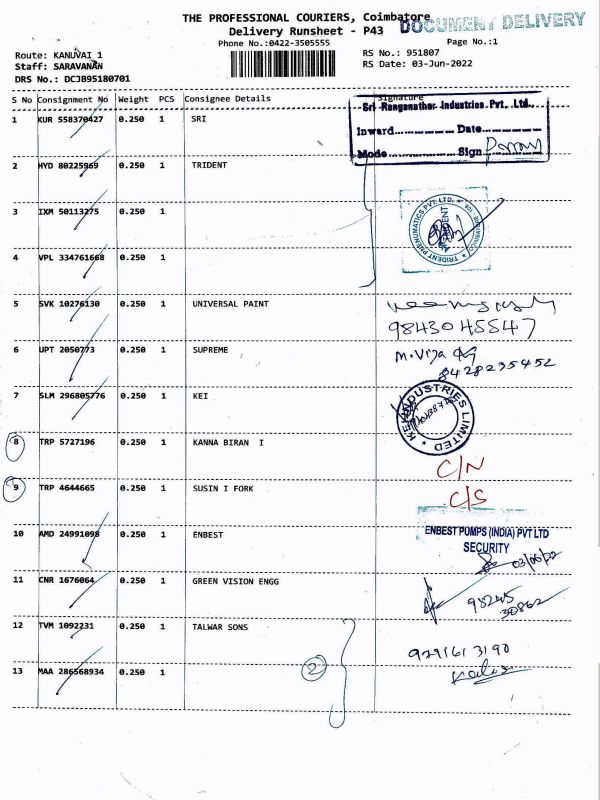 THE PROFESSIONAL COURIERS, Coimbatore
DOCUMENT DELIVERY
Delivery Runsheet - P43
Phone No.:0422-3505555
Page No.:1
Route: KANUVAI 1
RS No.: 951807
Staff: SARAVANAN
RS Date: 03-Jun-2022
DRS No.: DCJB95180701
S No Consignment No Weight PCS Consignee Details Signature
Sri Ranganathar Industries Pvt. Ltd.
1 KUR 558370427 0.250 1 SRI
Inward.............. Date..............
Mode.............. Sign
2 HYD 80225969 0.250 1 TRIDENT
TRIDENT PNEUMATICS PVT. LTD.
TRIDENT
3 IXM 50113275 0.250 1
4 VPL 334761668 0.250 1
5 SVK 10276130 0.250 1 UNIVERSAL PAINT
98430 45547
6 UPT 2050773 0.250 1 SUPREME
8428235452
7 SLM 296805776 0.250 1 KEI
KEI INDUSTRIES LIMITED
8 TRP 5727196 0.250 1 KANNA BIRAN I
C/N
9 TRP 4644665 0.250 1 SUSIN I FORK
C/S
10 AMD 24991098 0.250 1 ENBEST
ENBEST PUMPS (INDIA) PVT LTD
SECURITY
03/06/22
11 CNR 1676064 0.250 1 GREEN VISION ENGG
98245
30862
12 TVM 1092231 0.250 1 TALWAR SONS
979161 3190
13 MAA 286568934 0.250 1
2